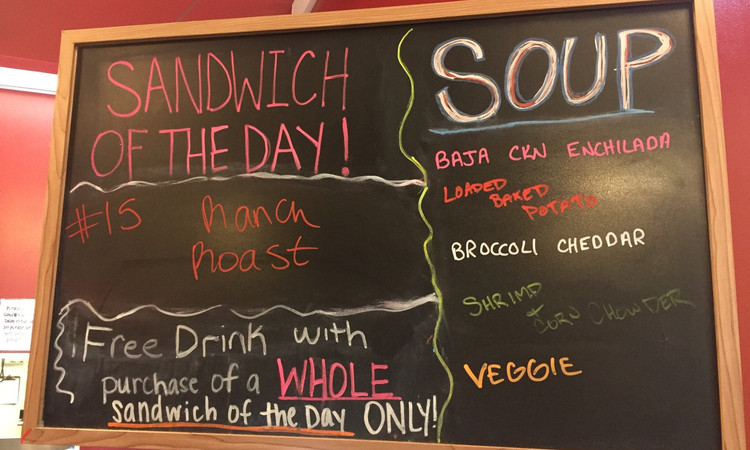 SANDWICH
OF THE DAY!
#15 Ranch
Roast
Free Drink with
purchase of a WHOLE
sandwich of the Day ONLY!
SOUP
BAJA CKN ENCHILADA
LOADED
BAKED
POTATO
BROCCOLI CHEDDAR
SHRIMP
+ CORN CHOWDER
VEGGIE